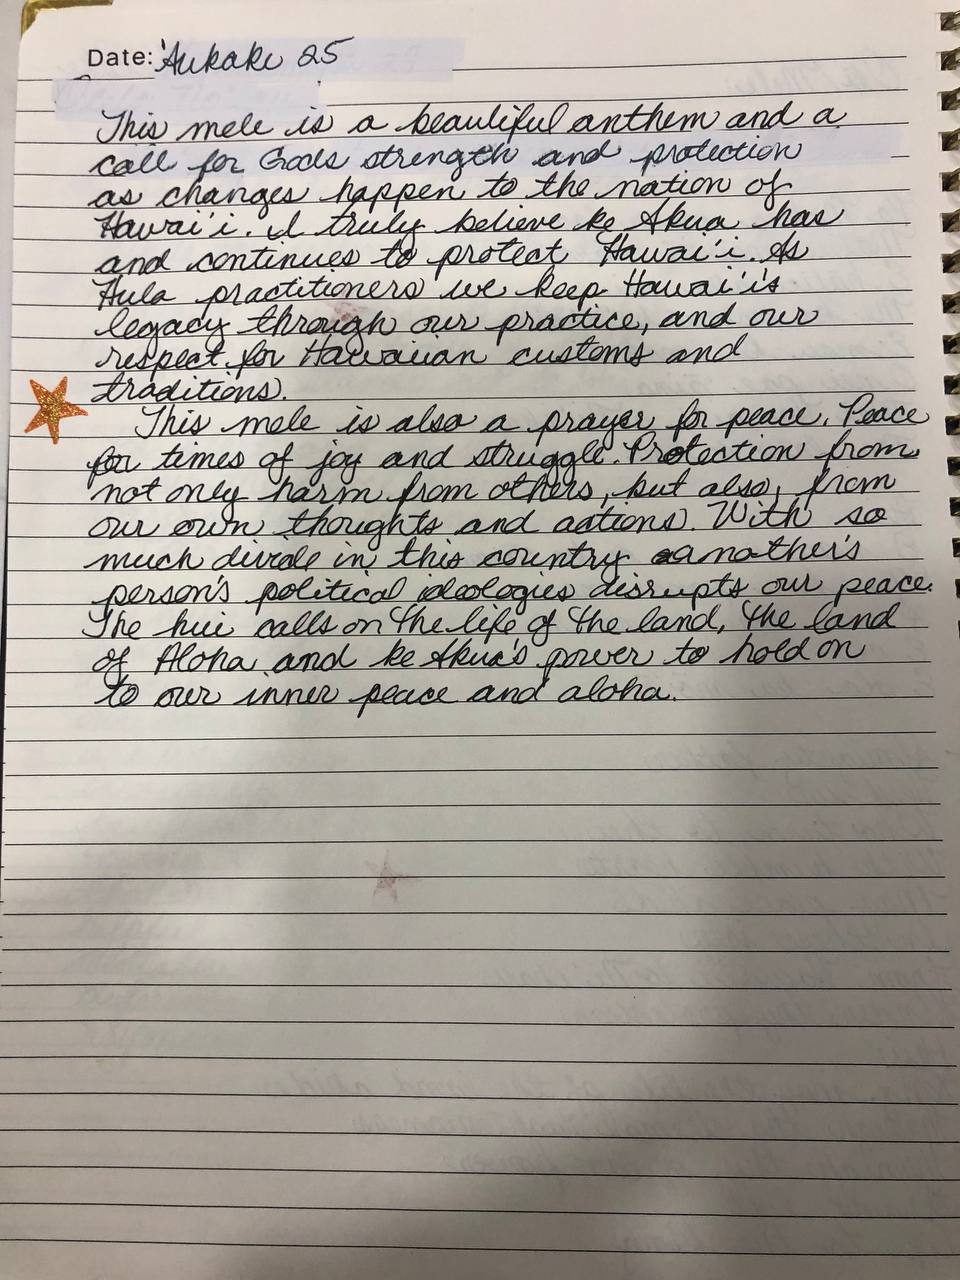 Date: 'Aukake 25
This mele is a beautiful anthem and a
call for Gods strength and protection
as changes happen to the nation of
Hawai'i. I truly believe ke Akua has
and continues to protect Hawai'i. As
Hula practitioners we keep Hawai'i's
legacy through our practice, and our
respect for Hawaiian customs and
traditions.
This mele is also a prayer for peace. Peace
for times of joy and struggle. Protection from
not only harm from others, but also, from
our own thoughts and actions. With so
much divide in this country anather's
person's political ideologies disrupts our peace.
The hui calls on the life of the land, the land
of Aloha and ke Akua's power to hold on
to our inner peace and aloha.